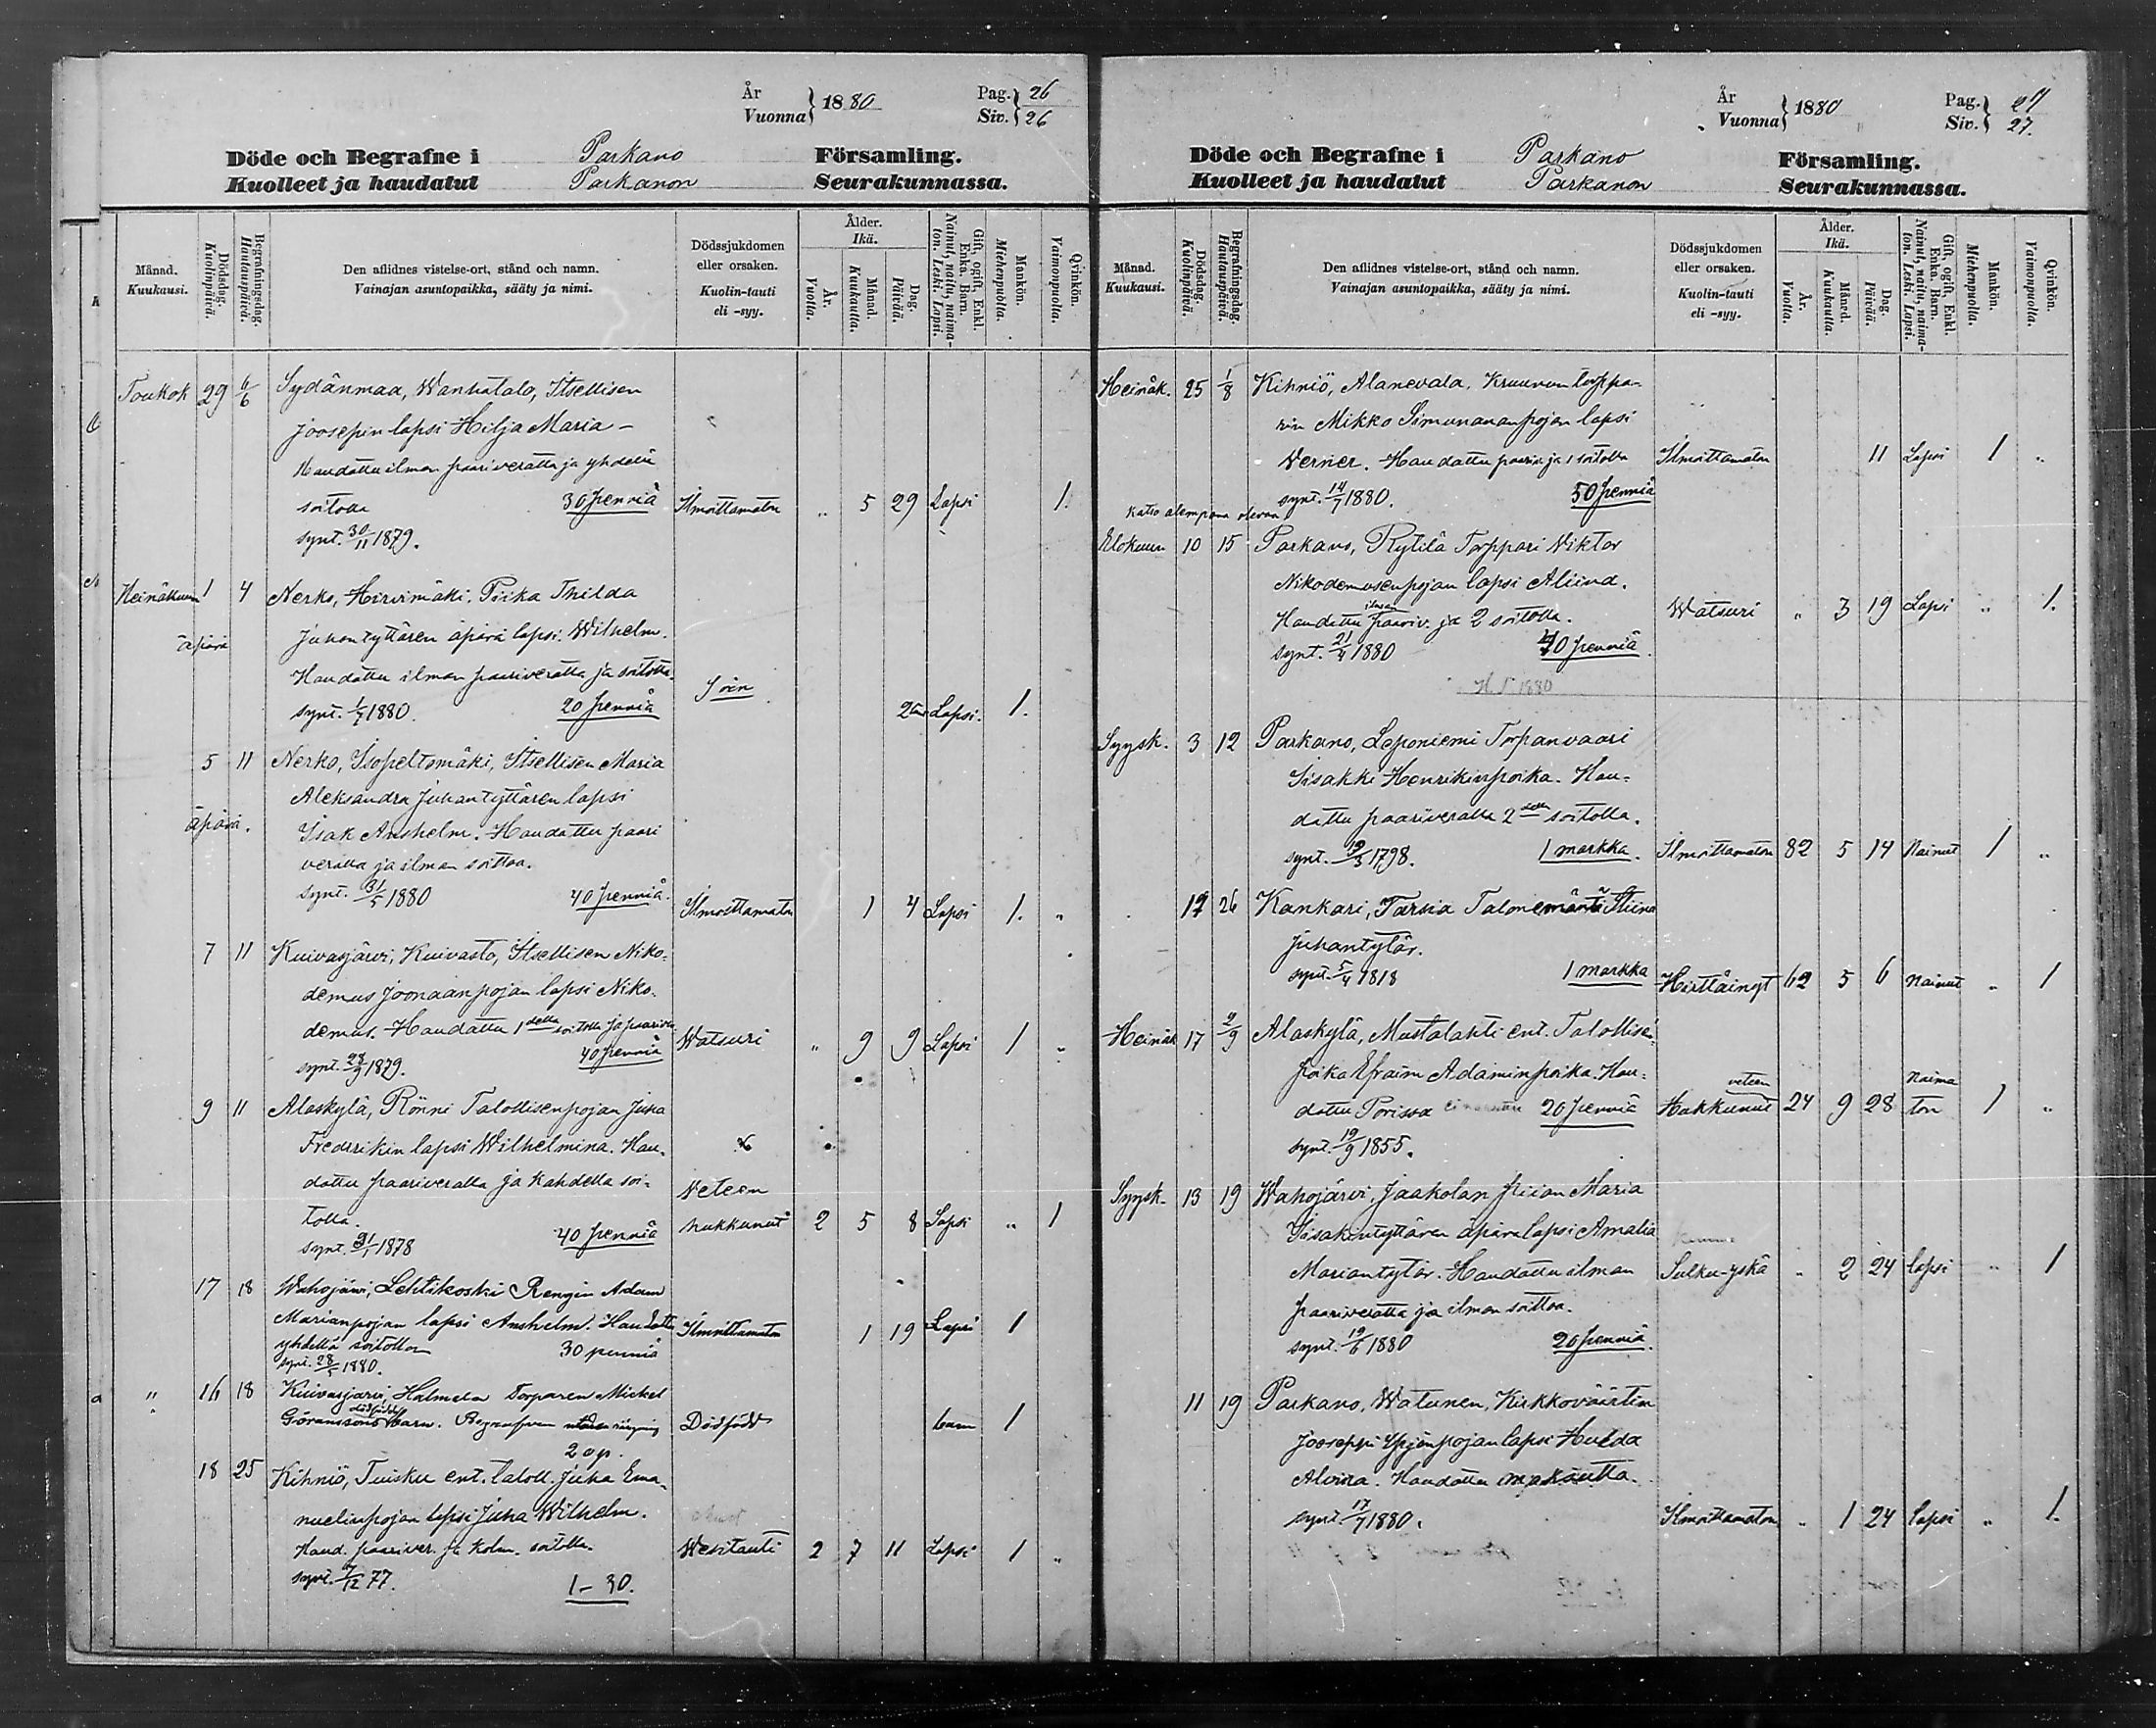 År
Vuonna } 1880
Pag. } 26
Siv. } 26
Döde och Begrafne i Parkano Församling.
Kuolleet ja haudatut Parkanon Seurakunnassa.
Månad.
Kuukausi.
Dödsdag.
Kuolinpäivä.
Begrafningsdag.
Hautauspäivä.
Den aflidnes vistelse-ort, stånd och namn.
Vainajan asuntopaikka, sääty ja nimi.
Dödssjukdomen
eller orsaken.
Kuolin-tauti
eli -syy.
Ålder.
Ikä.
År.
Vuotta.
Månad.
Kuukautta.
Dag.
Päivää.
Gift, ogift, Enkl.
Enka. Barn.
Nainut, naitu, naima-
ton. Leski. Lapsi.
Mankön.
Miehenpuolta.
Qvinkön.
Vaimonpuolta.
Toukok 29 6/6 Sydänmaa, Wanhatalo, Itsellisen
Joosepin lapsi Hilja Maria -
Haudattu ilman paariveratta ja yhdellä
soitolla 30 penniä Ilmoittamaton „ 5 29 Lapsi 1.
synt. 30/11 1879.
Heinäkuun 1 4 Nerko, Hirvimäki, Piika Thilda
äpärä Juhantyttären äpärä lapsi Wilhelm.
Haudattu ilman paariveratta ja soitotta.
synt. 1/7 1880. 20 penniä Lapsi. 1.
5 11 Nerko, Isopeltomäki, Itsellisen Maria
Aleksandra Juhantyttären lapsi
äpärä. Isak Anshelm. Haudattu paari
veralla ja ilman soittoa.
synt. 31/5 1880 40 penniä. Ilmoittamaton 1 4 Lapsi 1. „
7 11 Kuivasjärvi, Kuivasto, Itsellisen Niko-
demus Joonaanpojan lapsi Niko-
demus. Haudattu 1 della soitolla ja paariver. Watsuri „ 9 9 Lapsi 1 „
synt. 28/9 1879. 40 penniä
9 11 Alaskylä, Rönni Talollisenpojan Juha
Fredrikin lapsi Wilhelmina. Hau-
dattu paariveralla ja kahdella soi- Veteen
tolla. hukkunut 2 5 8 Lapsi „ 1
synt. 31/1 1878 40 penniä
17 18 Wahojärvi, Lehtikoski Rengin Adam
Marianpojan lapsi Anshelm. Haudattu Ilmoittamaton 1 19 Lapsi 1
yhdellä soitolla 30 penniä
synt. 28/5 1880.
„ 16 18 Kuivasjärvi, Halmela Torparen Mickel
Göranssons dödfödde Barn. Begrafven utan ringning Dödfödd barn 1
20 p.
18 25 Kihniö, Tuisku ent. taloll. Juha Ema-
nuelinpojan lapsi Juha Wilhelm.
Haud. paariver. ja kolm. soitolla. Wesitauti 2 7 11 Lapsi 1 „
synt. 7/12 77. 1 - 30.
År
Vuonna } 1880
Pag. } 27
Siv. } 27.
Döde och Begrafne i Parkano Församling.
Kuolleet ja haudatut Parkanon Seurakunnassa.
Månad.
Kuukausi.
Dödsdag.
Kuolinpäivä.
Begrafningsdag.
Hautauspäivä.
Den aflidnes vistelse-ort, stånd och namn.
Vainajan asuntopaikka, sääty ja nimi.
Dödssjukdomen
eller orsaken.
Kuolin-tauti
eli -syy.
Ålder.
Ikä.
År.
Vuotta.
Måned.
Kuukautta.
Dag.
Päivää.
Gift, ogift, Enkl.
Enka. Barn.
Nainut, naitu, naima-
ton. Leski. Lapsi.
Mankön.
Miehenpuolta.
Qvinkön.
Vaimonpuolta.
Heinäk. 25 1/8 Kihniö, Alanevala, Kruunun torppa-
rin Mikko Simunananpojan lapsi
Verner. Haudattu paariv. ja 1 soitolla Ilmoittamaton 11 Lapsi 1 „
synt. 14/7 1880. 50 penniä
katso alempana olevaa
Elokuun 10 15 Parkano, Rytilä Torppari Viktor
Nikodemusenpojan lapsi Aliind.
Haudattu ilman paariv. ja 2 soitolla. Watsuri „ 3 19 Lapsi „ 1.
synt. 21/4 1880 40 penniä.
Syysk. 3 12 Parkano, Leponiemi Torpanvaari
Iisakki Henrikinpoika. Hau-
dattu paariveralla 2 della soitolla.
synt. 19/3 1798. 1 markka. Ilmoittamaton 82 5 14 Nainut 1 „
26 Kankari, Tarsia Talonemäntä Stiina
Juhantytär.
synt. 5/4 1818 1 markka 62 5 6 Nainut „ 1
Heinäk 17 2/9 Alaskylä, Mustalahti ent. Talollisen
poika Efraim Adaminpoika. Hau-
dattu Porissa 20 penniä veteen Hukkunut 24 9 28 Naima
ton 1 „
synt. 19/9 1855.
Syysk. 13 19 Wahojärvi, Jaakolan piian Maria
Iisakintyttären äpärä lapsi Amalia
Mariantytär. Haudattu ilman Sulku-yskä „ 2 24 lapsi „ 1
paariveratta ja ilman soittoa.
synt. 19/6 1880 20 penniä.
11 19 Parkano, Watunen, Kirkkoväärtin
Jooseppi Yrjönpojan lapsi Hulda
Alvina. Haudattu maksutta.
synt. 17/7 1880. Ilmoittamaton „ 1 24 lapsi „ 1.